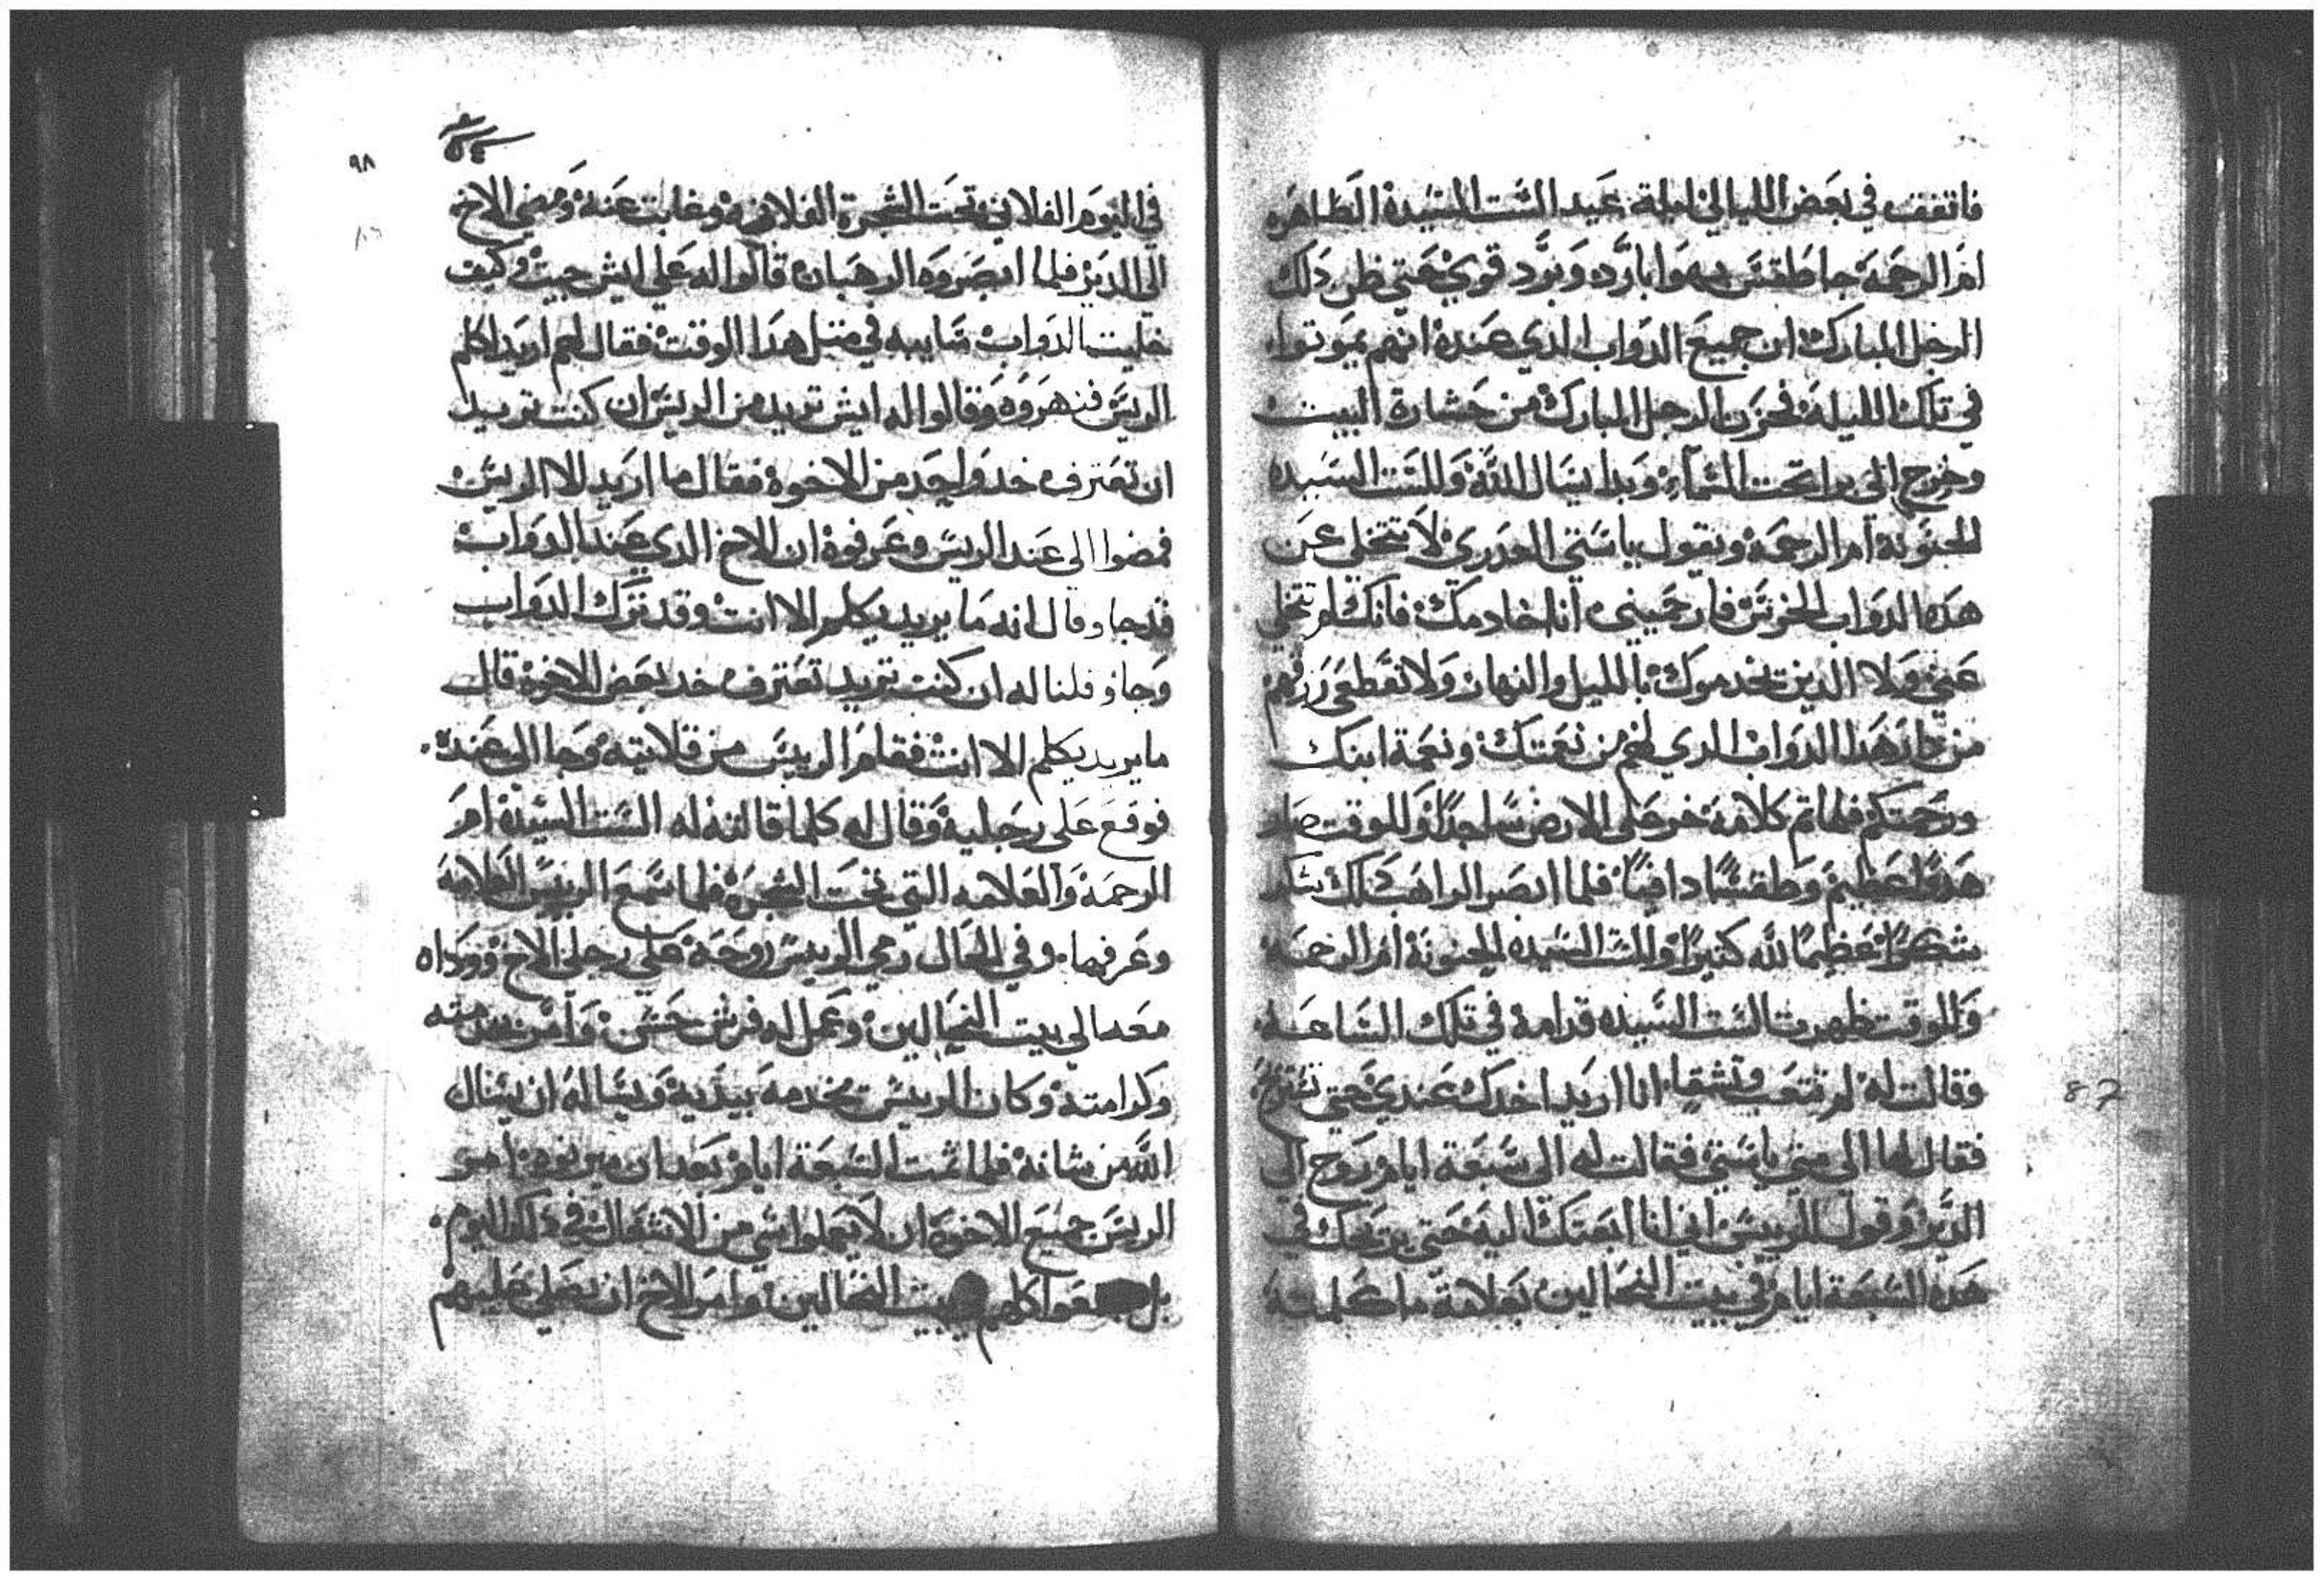 فاتفق في بعض الليالي ليلة عيد الست السيده الطاهره
ام الرحمه جا طقس بهوا بارد وبرد قوي حتى ظن دلك
الرجل المبارك ان جميع الدواب الدي عنده انهم يموتوا
في تلك الليله فحزن الرجل المبارك من خشارة البيت
وخرج الى برا تحت السماء وبدا يسال الله والست السيده
الحنونه ام الرحمه ويقول يا ستي العدرى لا تتخلي عن
هده الدواب الخرس فارحميني انا خادمك فانك لم تتخلي
عني ولا الدين يخدموك بالليل والنهار ولا تقطعي رزقهم
من هدا الدواب الدي لهم من نعمتك ونعمة ابنك
ورحمتكم فلما تم كلامه خر على الارض ساجدا وللوقت صار
هدوا عظيم وطقسا دافيا فلما ابصر الراهب دلك شكر
شكرا عظيما لله كتيرا والست السيده الحنونه ام الرحمه
وللوقت ظهرت الست السيده قدامه في تلك الساعه
وقالت له لم تتعب وتشقا انا اريد اخدك عندي حتى تستريح
فقال لها الى متى يا ستي فقالت له الى سبعة ايام روح الى
الدير وقول للرييس اني انا ابعتك اليه حتى يريحك في
هده السبعة ايام في بيت النحالين بعلامة ما كلمته
٩٨
٨٦
في اليوم الفلاني تحت الشجرة الفلانيه وغابت عنه ومضي الاخ
الى الدير فلما ابصروه الرهبان قالوا له على ايش جيت وكيف
خليت الدواب سايبه في متل هدا الوقت فقال لهم اريد اكلم
الريس فنهروه وقالوا له ايش تريد من الريس ان كنت تريد
ان تعترف خد واحد من الاخوه فقال ما اريد الا الريس
فمضوا الى عند الريس وعرفوه ان الاخ الدي عند الدواب
قد جا وقال انه ما يريد يكلم الا انت وقد ترك الدواب
وجا وقلنا له ان كنت تريد تعترف خد بعض الاخوه قال
ما يريد يكلم الا انت فقام الرييس من قلايته وجا الى عنده
فوقع على رجليه وقال له كلما قالته له الست السيده ام
الرحمه والعلامه التي تحت الشجره فلما سمع الرييس العلامه
وعرفها وفي الحال رمي الرييس روحه على رجلي الاخ ووداه
معه الي بيت النحالين وعمل له فرش حسن وامر بخدمته
وكرامته وكان الرييس يخدمه بيديه ويساله ان يسال
الله من شانه فلما تمت السبعة ايام بعد ان امر
الريس جميع الاخوه ان لا يعملوا شي من الاشغال في دلك اليوم
بل كلهم بيت النحالين وامر الاخ ان يصلي عليهم
87